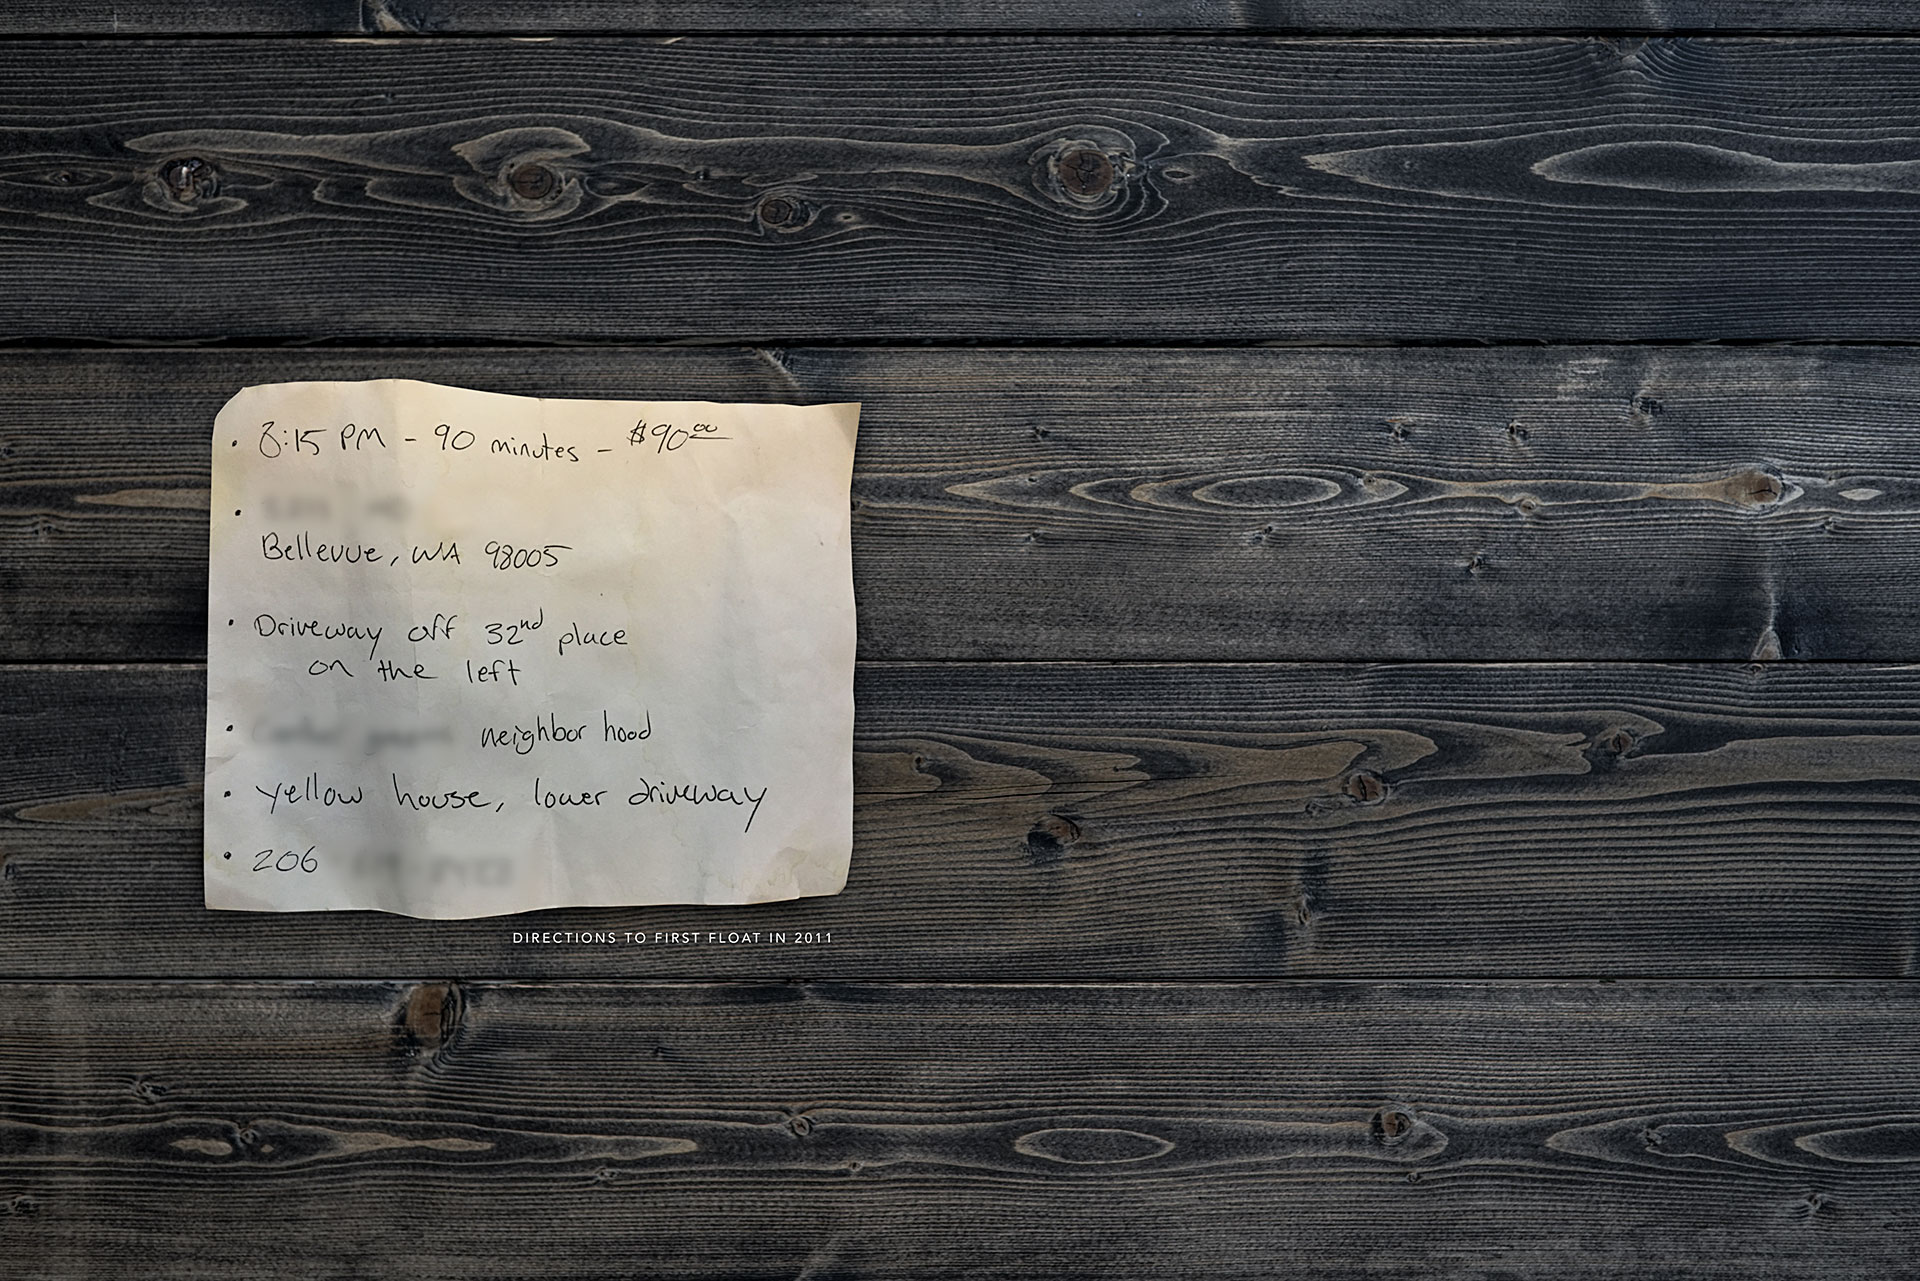 • 8:15 PM - 90 minutes - $90.00
•
Bellevue, WA 98005
• Driveway off 32nd place
on the left
• neighbor hood
• yellow house, lower driveway
• 206
DIRECTIONS TO FIRST FLOAT IN 2011